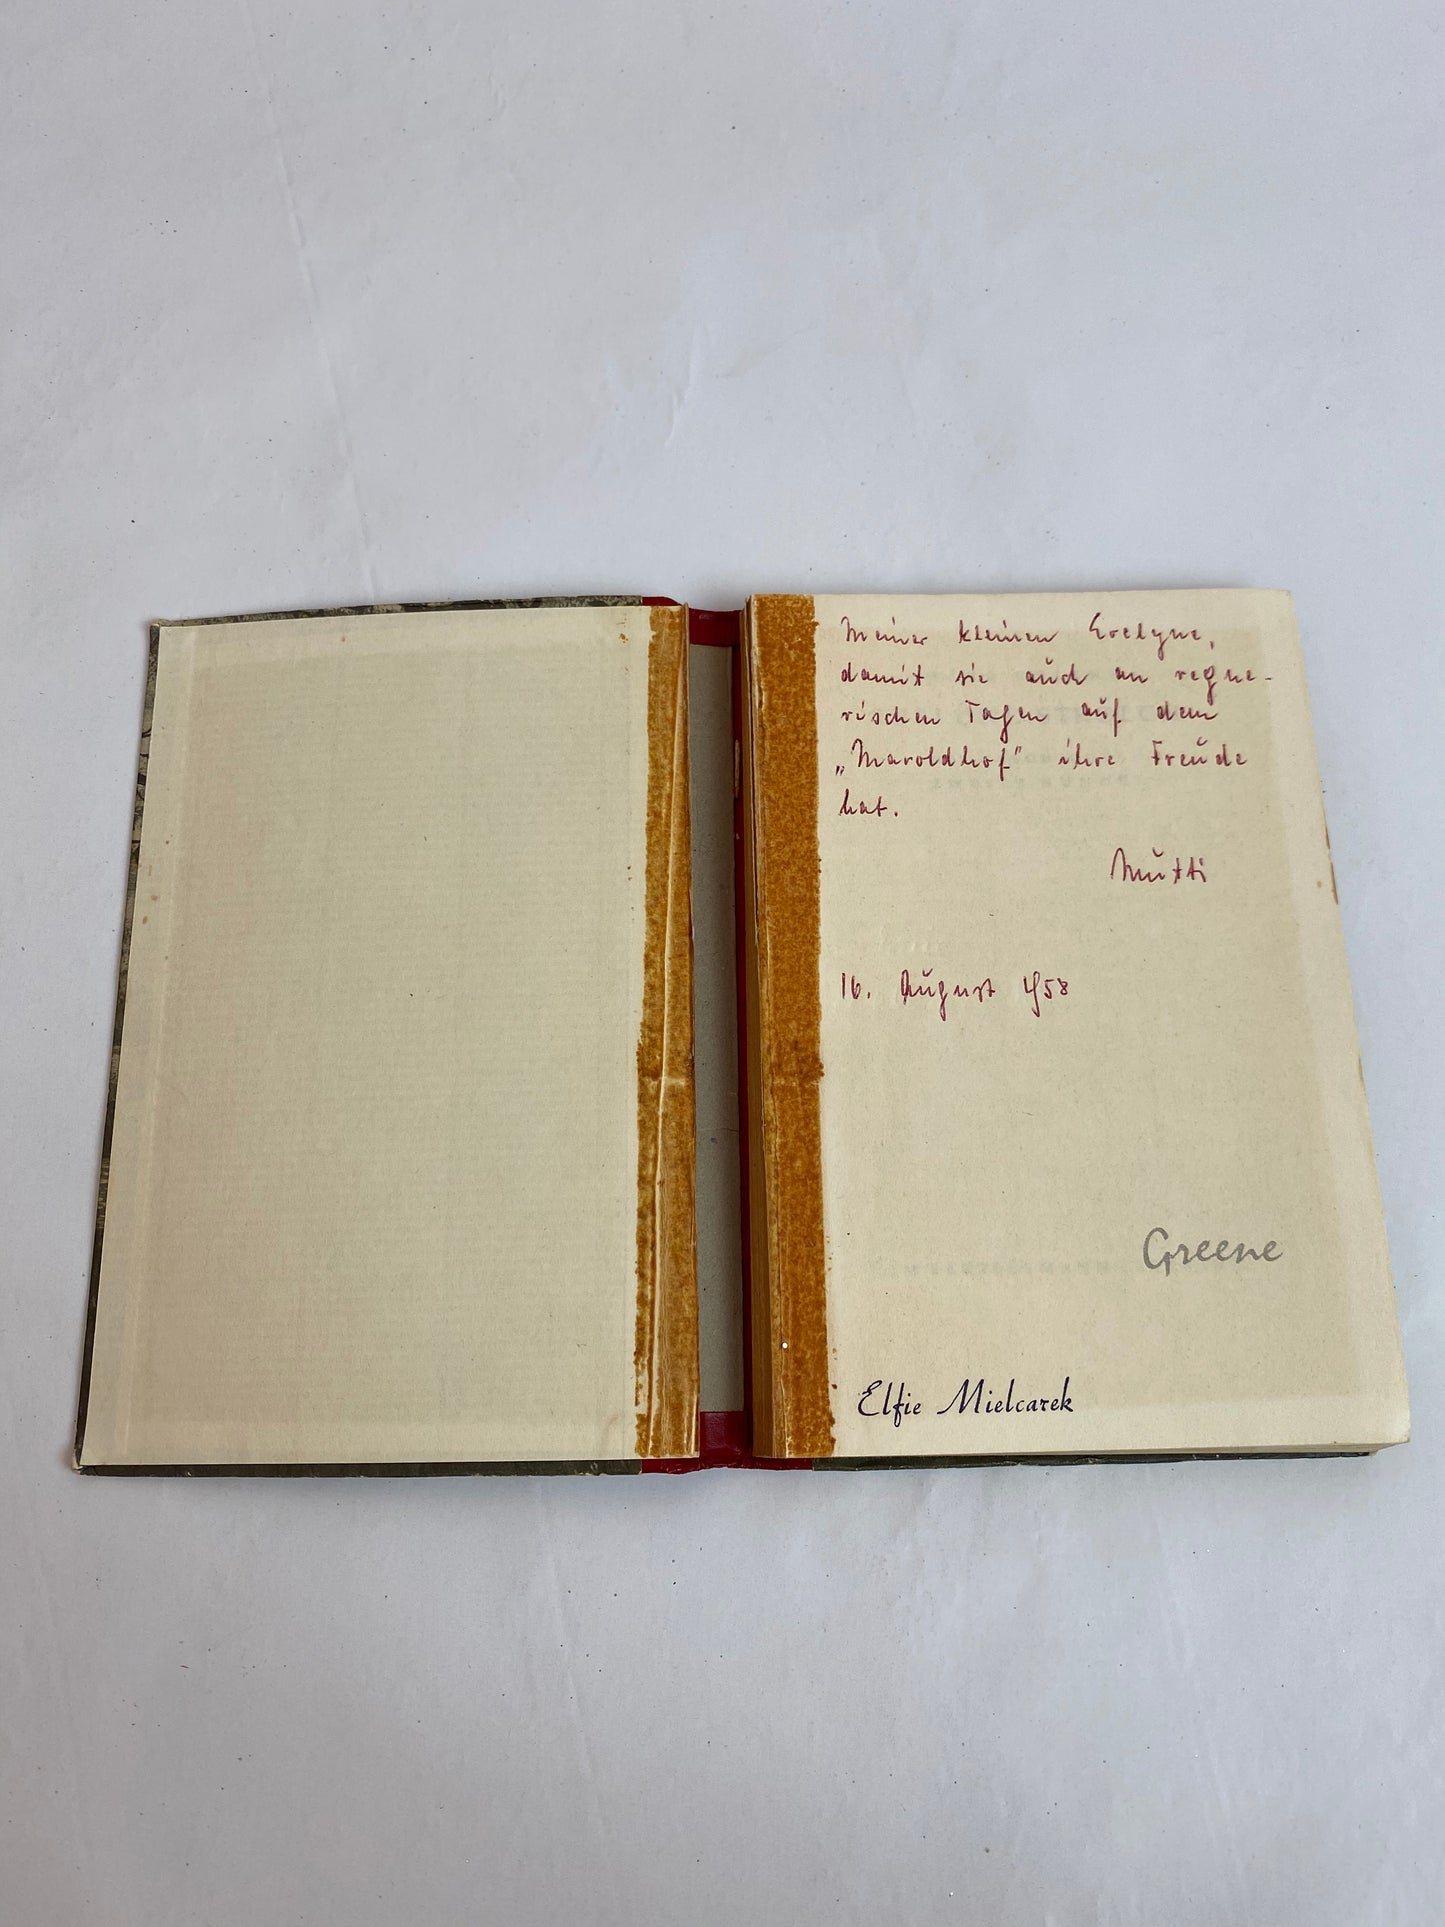 Meiner kleinen Evelyne,
damit sie auch an regne-
rischen Tagen auf dem
„Maroldhof" ihre Freude
hat.
Mutti
16. August 1958
Greene
Elfie Mielcarek